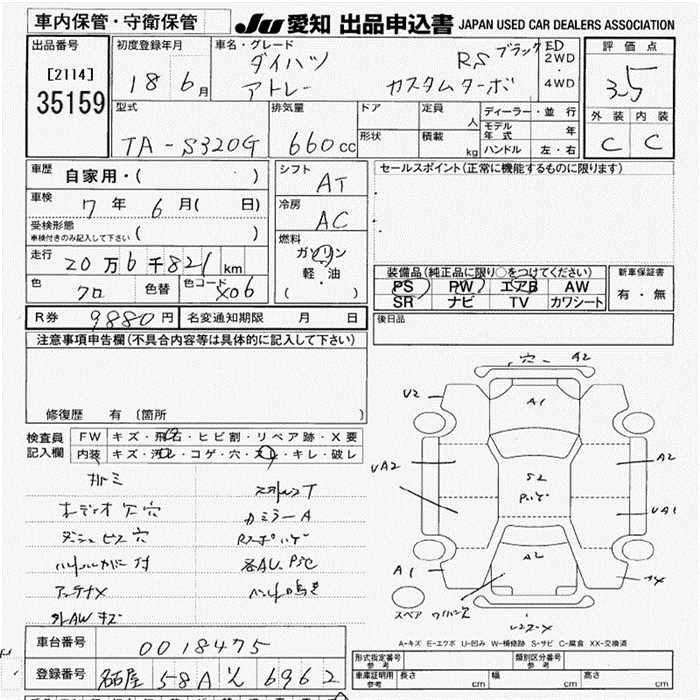 車内保管・守衛保管
JU 愛知 出品申込書 JAPAN USED CAR DEALERS ASSOCIATION
出品番号
[2114]
35159
初度登録年月
18 6月
車名・グレード
ダイハツ RS ブラック
アトレー カスタムターボ
ED
2WD
・
4WD
評価点
3.5
外装 内装
C C
型式
TA-S320G
排気量
660cc
ドア
形状
定員 人
積載 kg
ディーラー・並行
モデル年式 年
ハンドル 左・右
車歴 自家用・( )
車検 7年 6月( 日)
受検形態
車検付きのみ記入して下さい ( )
走行 20万6千821km
色 クロ 色替 色コード X06
シフト AT
冷房 AC
燃料
ガソリン
軽・油
( )
セールスポイント(正常に機能するものに限ります)
装備品(純正品に限り○をつけてください)
PS PW エアB AW
SR ナビ TV カワシート
新車保証書
有・無
後日品
R券 9880円 名変通知期限 月 日
注意事項申告欄(不具合内容等は具体的に記入して下さい)
修復歴 有 (箇所 )
検査員
記入欄
FW キズ・飛石・ヒビ割・リペア跡・X要
内装 キズ・汚レ・コゲ・穴・スレ・キレ・破レ
オーディオ 穴
ダッシュ ビス穴
ハンドルカバー付
アンテナX
カミラーA
外AWキズ
穴 A2
U2
A1
UA2
A2
S2
UA1
A1
A2
スペア
A-キズ E-エクボ U-凹み W-補修跡 S-サビ C-腐食 XX-交換済
車台番号 0018475
登録番号 名古屋 58A 6962
形式指定番号
参考
類別区分番号
参考
車庫証明用
参考
長さ cm 幅 cm 高さ cm